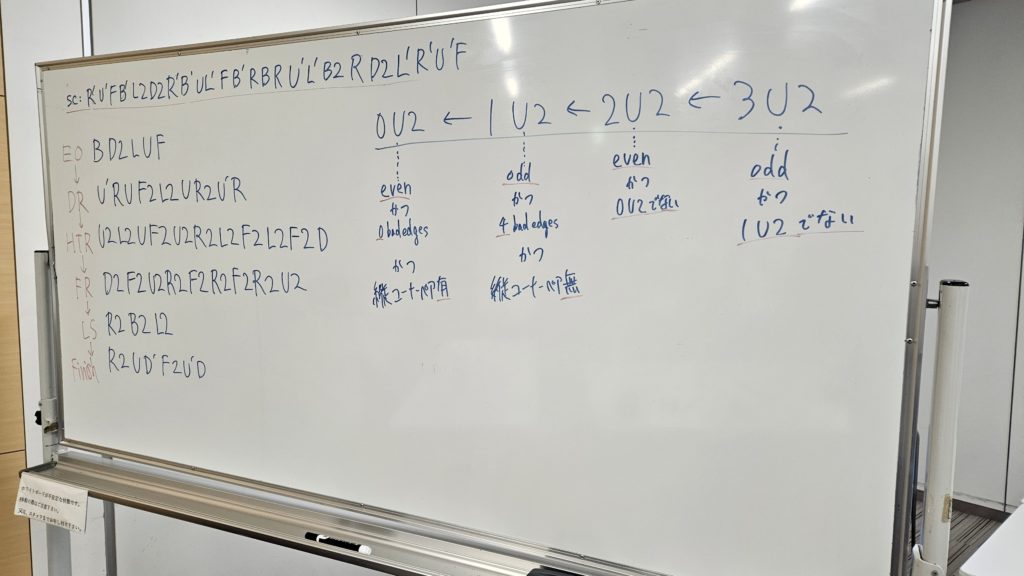 sc: R'U'F B'L2D2R'B'UL'FB'RBR U'L'B2 R D2L'R'U'F
EO B D2 L U F
DR U'RUF2L2UR2U'R
HTR U2L2UF2U2R2L2F2L2F2D
FR D2F2U2R2F2R2F2R2U2
LS R2B2L2
Finish R2UD'F2U'D
0U2 ← 1U2 ← 2U2 ← 3U2
even
かつ
0 bad edges
かつ
縦コーナーペア有
odd
かつ
4 bad edges
かつ
縦コーナーペア無
even
かつ
0U2でない
odd
かつ
1U2でない